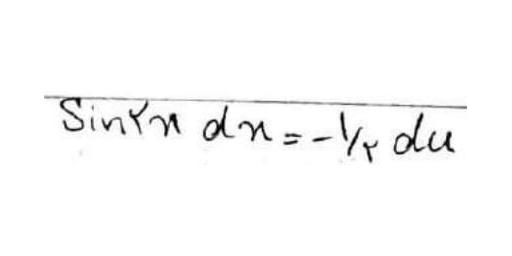 Sin۲x dx = -۱/۲ du